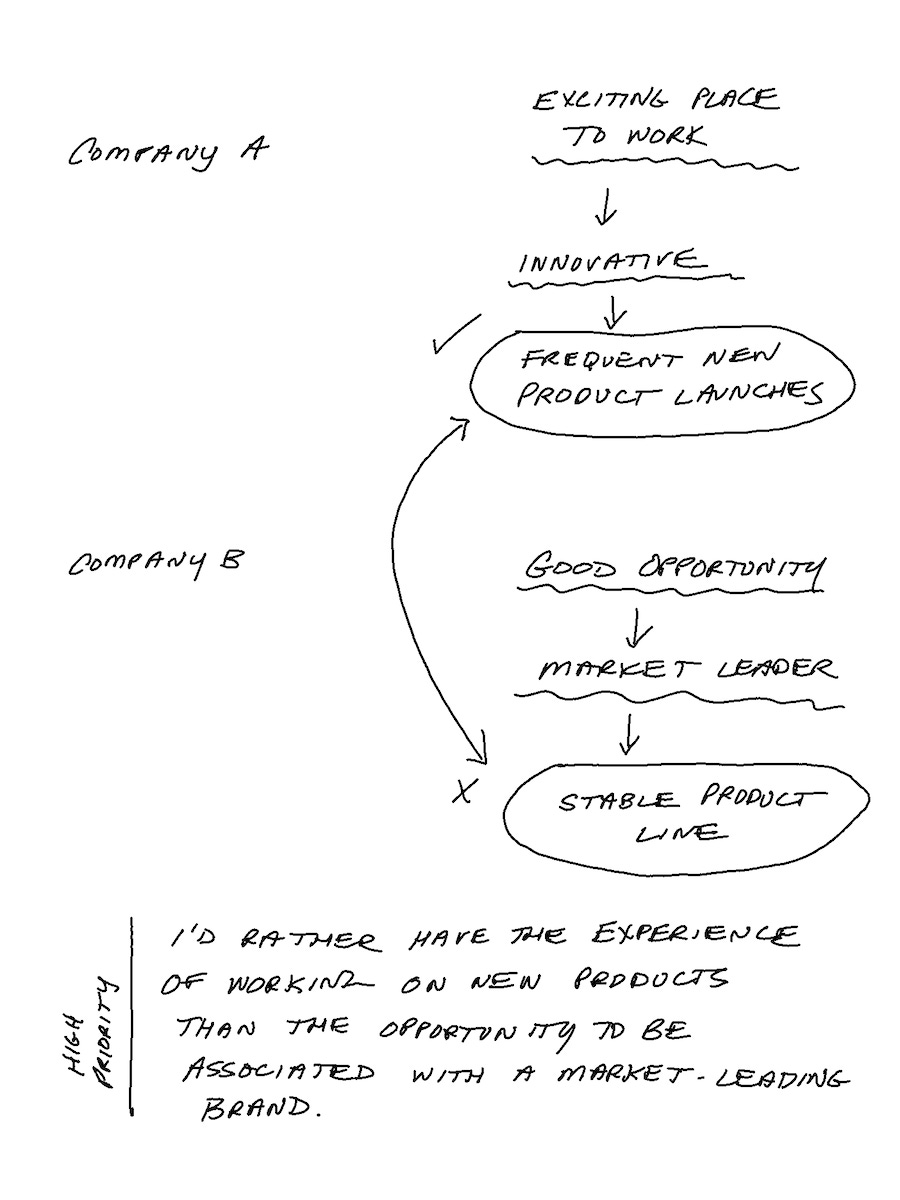 EXCITING PLACE
TO WORK
COMPANY A
INNOVATIVE
FREQUENT NEW
PRODUCT LAUNCHES
COMPANY B
GOOD OPPORTUNITY
MARKET LEADER
X
STABLE PRODUCT
LINE
HIGH
PRIORITY
I'D RATHER HAVE THE EXPERIENCE
OF WORKING ON NEW PRODUCTS
THAN THE OPPORTUNITY TO BE
ASSOCIATED WITH A MARKET-LEADING
BRAND.